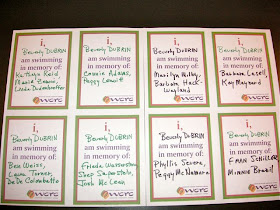 i,
Beverly DUBRIN
am swimming
in memory of:
Kathryn Reid,
Maria
Linda
wcrc
i,
Beverly DUBRIN
am swimming
in memory of:
Connie Adams,
Peggy
wcrc
i,
Beverly DUBRIN
am swimming
in memory of:
Marilyn
Barbara Heck-
Wayland
wcrc
i,
Beverly DUBRIN
am swimming
in memory of:
Barbara
Kay Maynard
wcrc
i,
Beverly DUBRIN
am swimming
in memory of:
Ben Weiss,
Laura Turner,
DeDe Colombatto
wcrc
i,
Beverly DUBRIN
am swimming
in memory of:
Frieda Wasserstrom,
Shep
Josh McLean
wcrc
i,
Beverly DUBRIN
am swimming
in memory of:
Phyllis Severa,
Peggy McNamara
wcrc
i,
Beverly DUBRIN
am swimming
in memory of:
FRAN Schiller
Minnie Brazil
wcrc